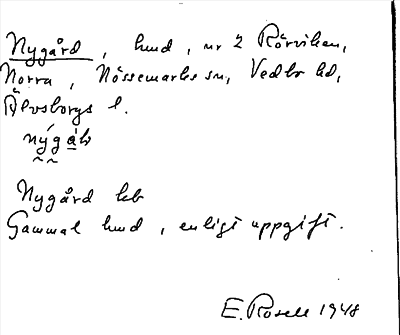 Nygård, hmd, nr 2 Rörviken,
Norra, Nössemarks sn, Vedbo hd,
Älvsborgs l.
Nygård kb
Gammal hmd, enligt uppgift.
E. Rosell 1948